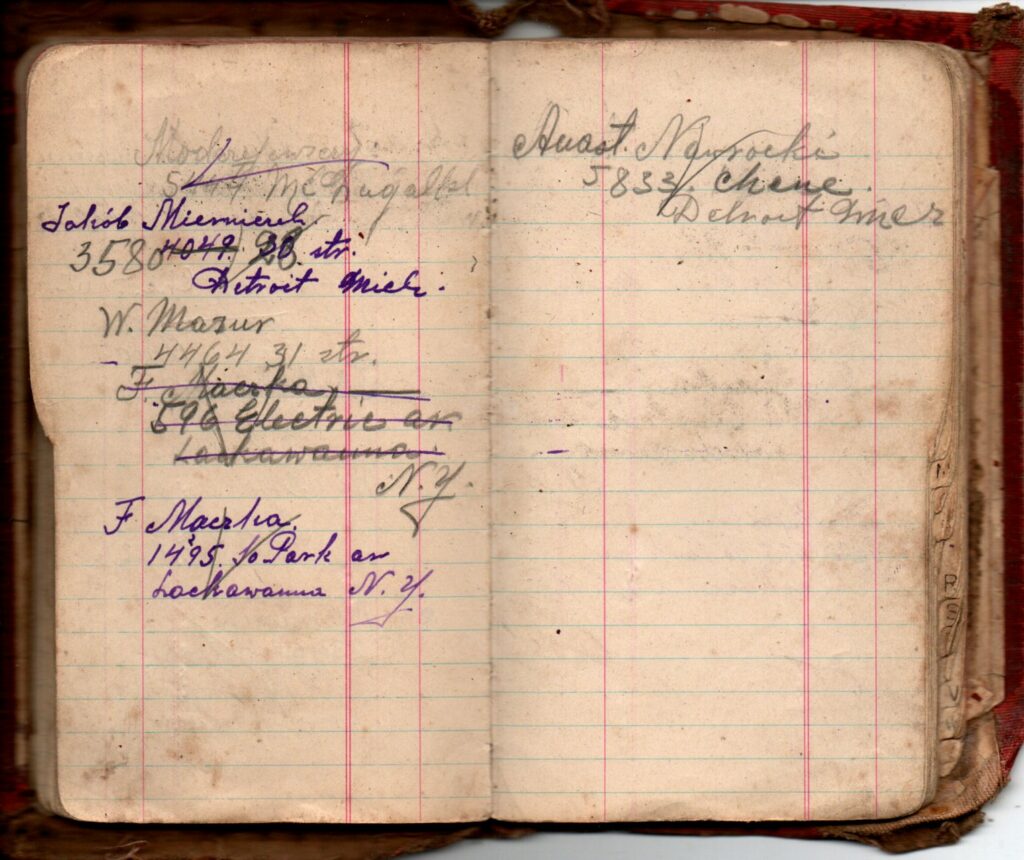 Mc Dugall st
Jakób Mierniczek
3580 4049. 28. str.
Detroit Mich.
W. Mazur
4464 31 str.
F. Maczka
596 Electric av
Lackawanna
N.Y.
F Maczka.
1495. So Park av
Lackawanna N.Y.
Anast. Nawrocki
5833. Chene.
Detroit Mich